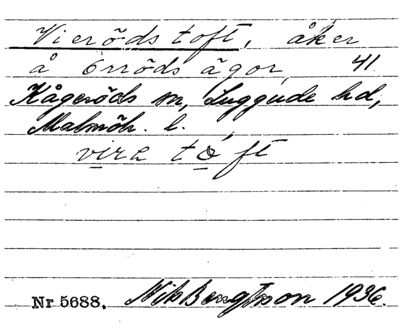 Vierödstoft, åker
å Örröds ägor, 41
Kågeröds sn, Luggude hd,
Malmöh. l.
vira toft
Nr 5688. Nils Bengtsson 1936.